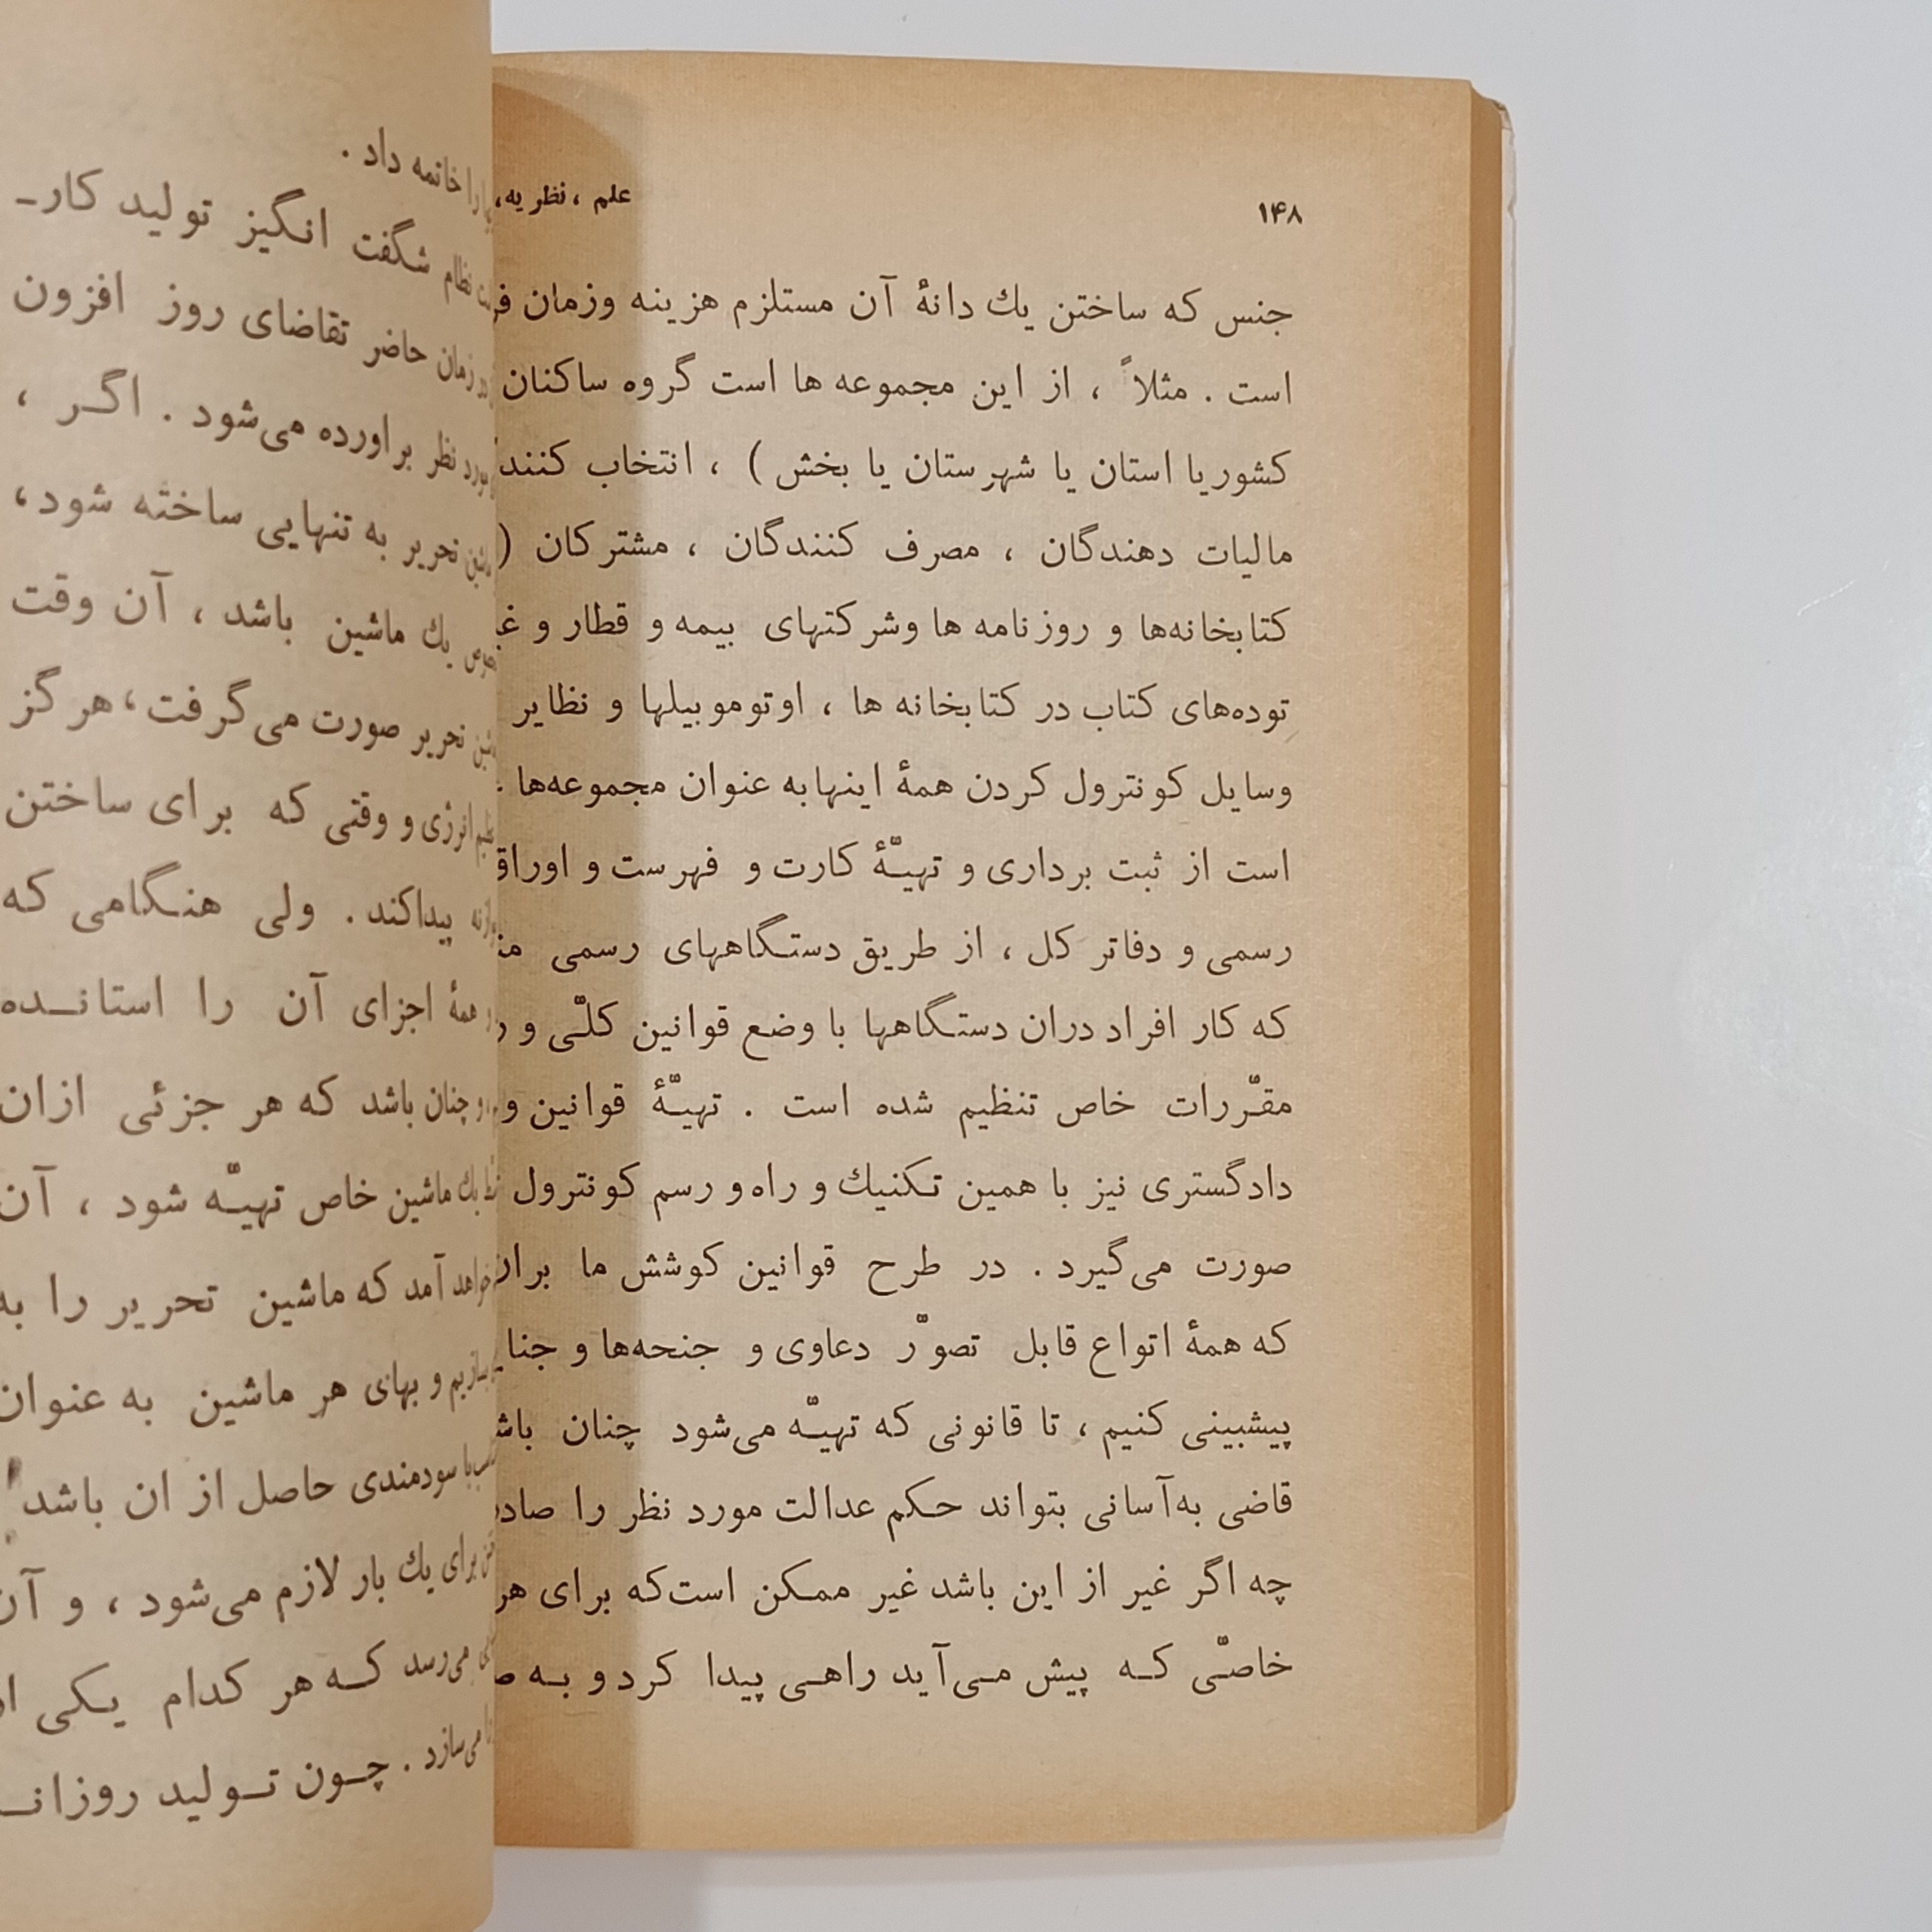 ۱۴۸
علم ، نظریه،
جنس که ساختن یك دانهٔ آن مستلزم هزینه وزمان
است . مثلاً ، از این مجموعه ها است گروه ساکنان
کشوریا استان یا شهرستان یا بخش ) ، انتخاب
مالیات دهندگان ، مصرف کنندگان ، مشترکان (
کتابخانه‌ها و روزنامه ها وشرکتهای بیمه و قطار و
توده‌های کتاب در کتابخانه ها ، اوتوموبیلها و نظایر
وسایل کونترول کردن همهٔ اینهابه عنوان مجموعه‌ها
است از ثبت برداری و تهیـّهٔ کارت و فهرست و
رسمی و دفاتر کل ، از طریق دستگاههای رسمی
که کار افراد دران دستگاهها با وضع قوانین کلّی و
مقـّررات خاص تنظیم شده است . تهیـّهٔ قوانین و
دادگستری نیز با همین تکنیك و راه و رسم کونترول
صورت می‌گیرد . در طرح قوانین کوشش ما
که همهٔ اتواع قابل تصوّر دعاوی و جنحه‌ها و
پیشبینی کنیم ، تا قانونی که تهیـّه می‌شود چنان
قاضی به‌آسانی بتواند حکم عدالت مورد نظر را
چه اگر غیر از این باشد غیر ممکن است‌که برای هر
خاصّی کـه پیش مـی‌آید راهـی پیدا کرد و بـه
را خاتمه داد .
نظام شگفت انگیز تولید کارـ
زمان حاضر تقاضای روز افزون
مورد نظر براورده می‌شود . اگـر ،
تحریر به تنهایی ساخته شود،
یك ماشین باشد ، آن وقت
تحریر صورت می‌گرفت، هرگز
انرژی و وقتی که برای ساختن
پیداکند . ولی هنـگامی که
همهٔ اجزای آن را استانـده
و چنان باشد که هر جزئی ازان
یك ماشین خاص تهیـّه شود ، آن
خواهد آمد که ماشین تحریر را به
و بهای هر ماشین به عنوان
سودمندی حاصل از ان باشد
برای یك بار لازم می‌شود ، و آن
می‌رسد کـه هر کدام یـکی
می‌سازد . چـون تـولید